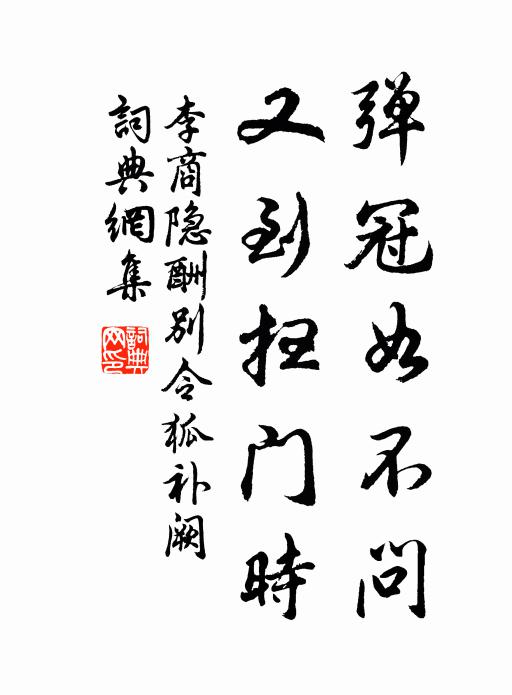 弹冠如不问
又到扫门時
李商隐酬别令狐补阙
詞典網集
詞典
网印